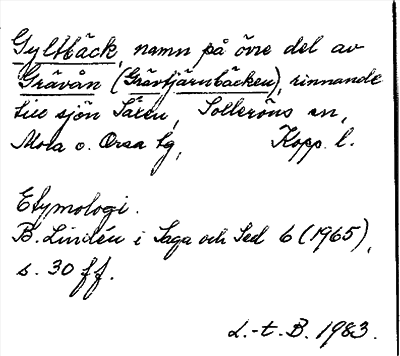 Gyltbäck, namn på övre del av
Gråvån (Gråvtjärnbäcken), rinnande
till sjön Säen, Solleröns sn,
Mora o. Orsa tg, Kopp. l.
Etymologi.
B. Lindén i Saga och Sed 6 (1965),
s. 30 ff.
L.-t. B. 1983.